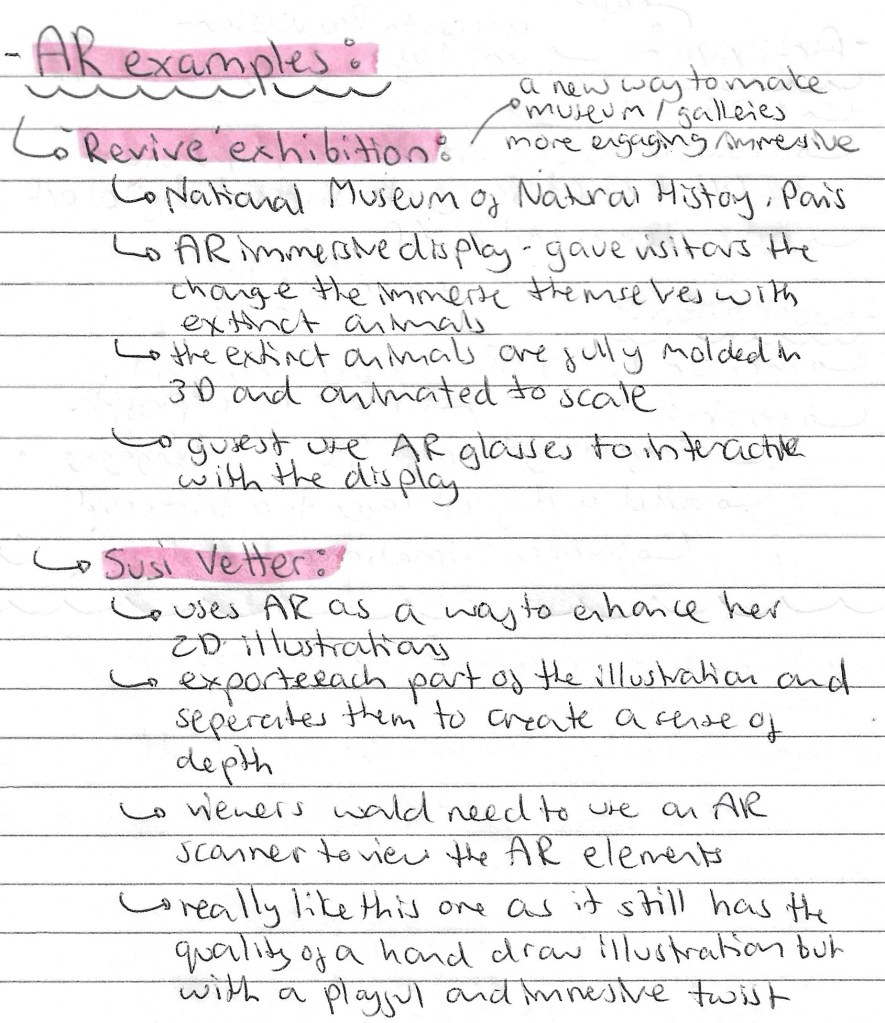 - AR examples:
a new way to make
museum / galleries
more engaging/immersive
Revive exhibition:
National Museum of Natural History, Paris
AR immersive display - gave visitors the
change the immerse themselves with
extinct animals
the extinct animals are fully molded in
3D and animated to scale
guest use AR glasses to interactive
with the display
Susi Vetter:
uses AR as a way to enhance her
2D illustrations
exportes each part of the illustration and
seperates them to create a sense of
depth
viewers would need to use an AR
scanner to view the AR elements
really like this one as it still has the
quality of a hand draw illustration but
with a playful and immersive twist